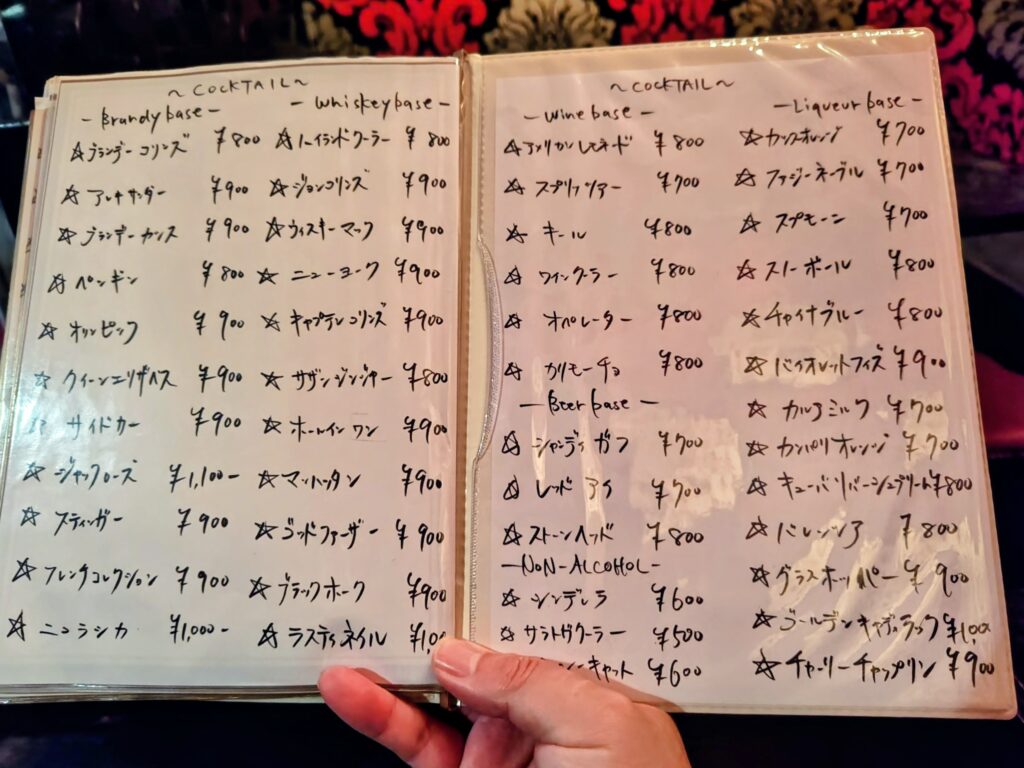 ~COCKTAIL~
- Brandy base -
☆ブランデーコリンズ ¥800
☆アレキサンダー ¥900
☆ブランデーカシス ¥900
☆ペンギン ¥800
☆オリンピック ¥900
☆クイーンエリザベス ¥900
☆サイドカー ¥900
☆ジャックローズ ¥1,100-
☆スティンガー ¥900
☆フレンチコレクション ¥900
☆ニコラシカ ¥1,000-
- Whiskey base -
☆ハイランドクーラー ¥800
☆ジョンコリンズ ¥900
☆ウィスキーマック ¥900
☆ニューヨーク ¥900
☆キャプテンコリンズ ¥900
☆サザンジンジャー ¥800
☆ホールインワン ¥900
☆マンハッタン ¥900
☆ゴッドファーザー ¥900
☆ブラックホーク ¥900
☆ラスティネイル
~COCKTAIL~
- Wine base -
☆アメリカンレモネード ¥800
☆スプリッツァー ¥700
☆キール ¥800
☆ワインクーラー ¥800
☆オペレーター ¥800
☆カリモーチョ ¥800
- Beer base -
☆シャンディガフ ¥700
☆レッドアイ ¥700
☆ストーンヘッド ¥800
-NON-ALCOHOL-
☆シンデレラ ¥600
☆サラトガクーラー ¥500
キャット ¥600
- Liqueur base -
☆カシスオレンジ ¥700
☆ファジーネーブル ¥700
☆スプモーニ ¥700
☆スノーボール ¥800
☆チャイナブルー ¥800
☆バイオレットフィズ ¥900
☆カルアミルク ¥700
☆カンパリオレンジ ¥700
☆キューバリバーシュプリーム ¥800
☆バレンシア ¥800
☆グラスホッパー ¥900
☆ゴールデンキャディラック ¥1,000
☆チャーリーチャップリン ¥900